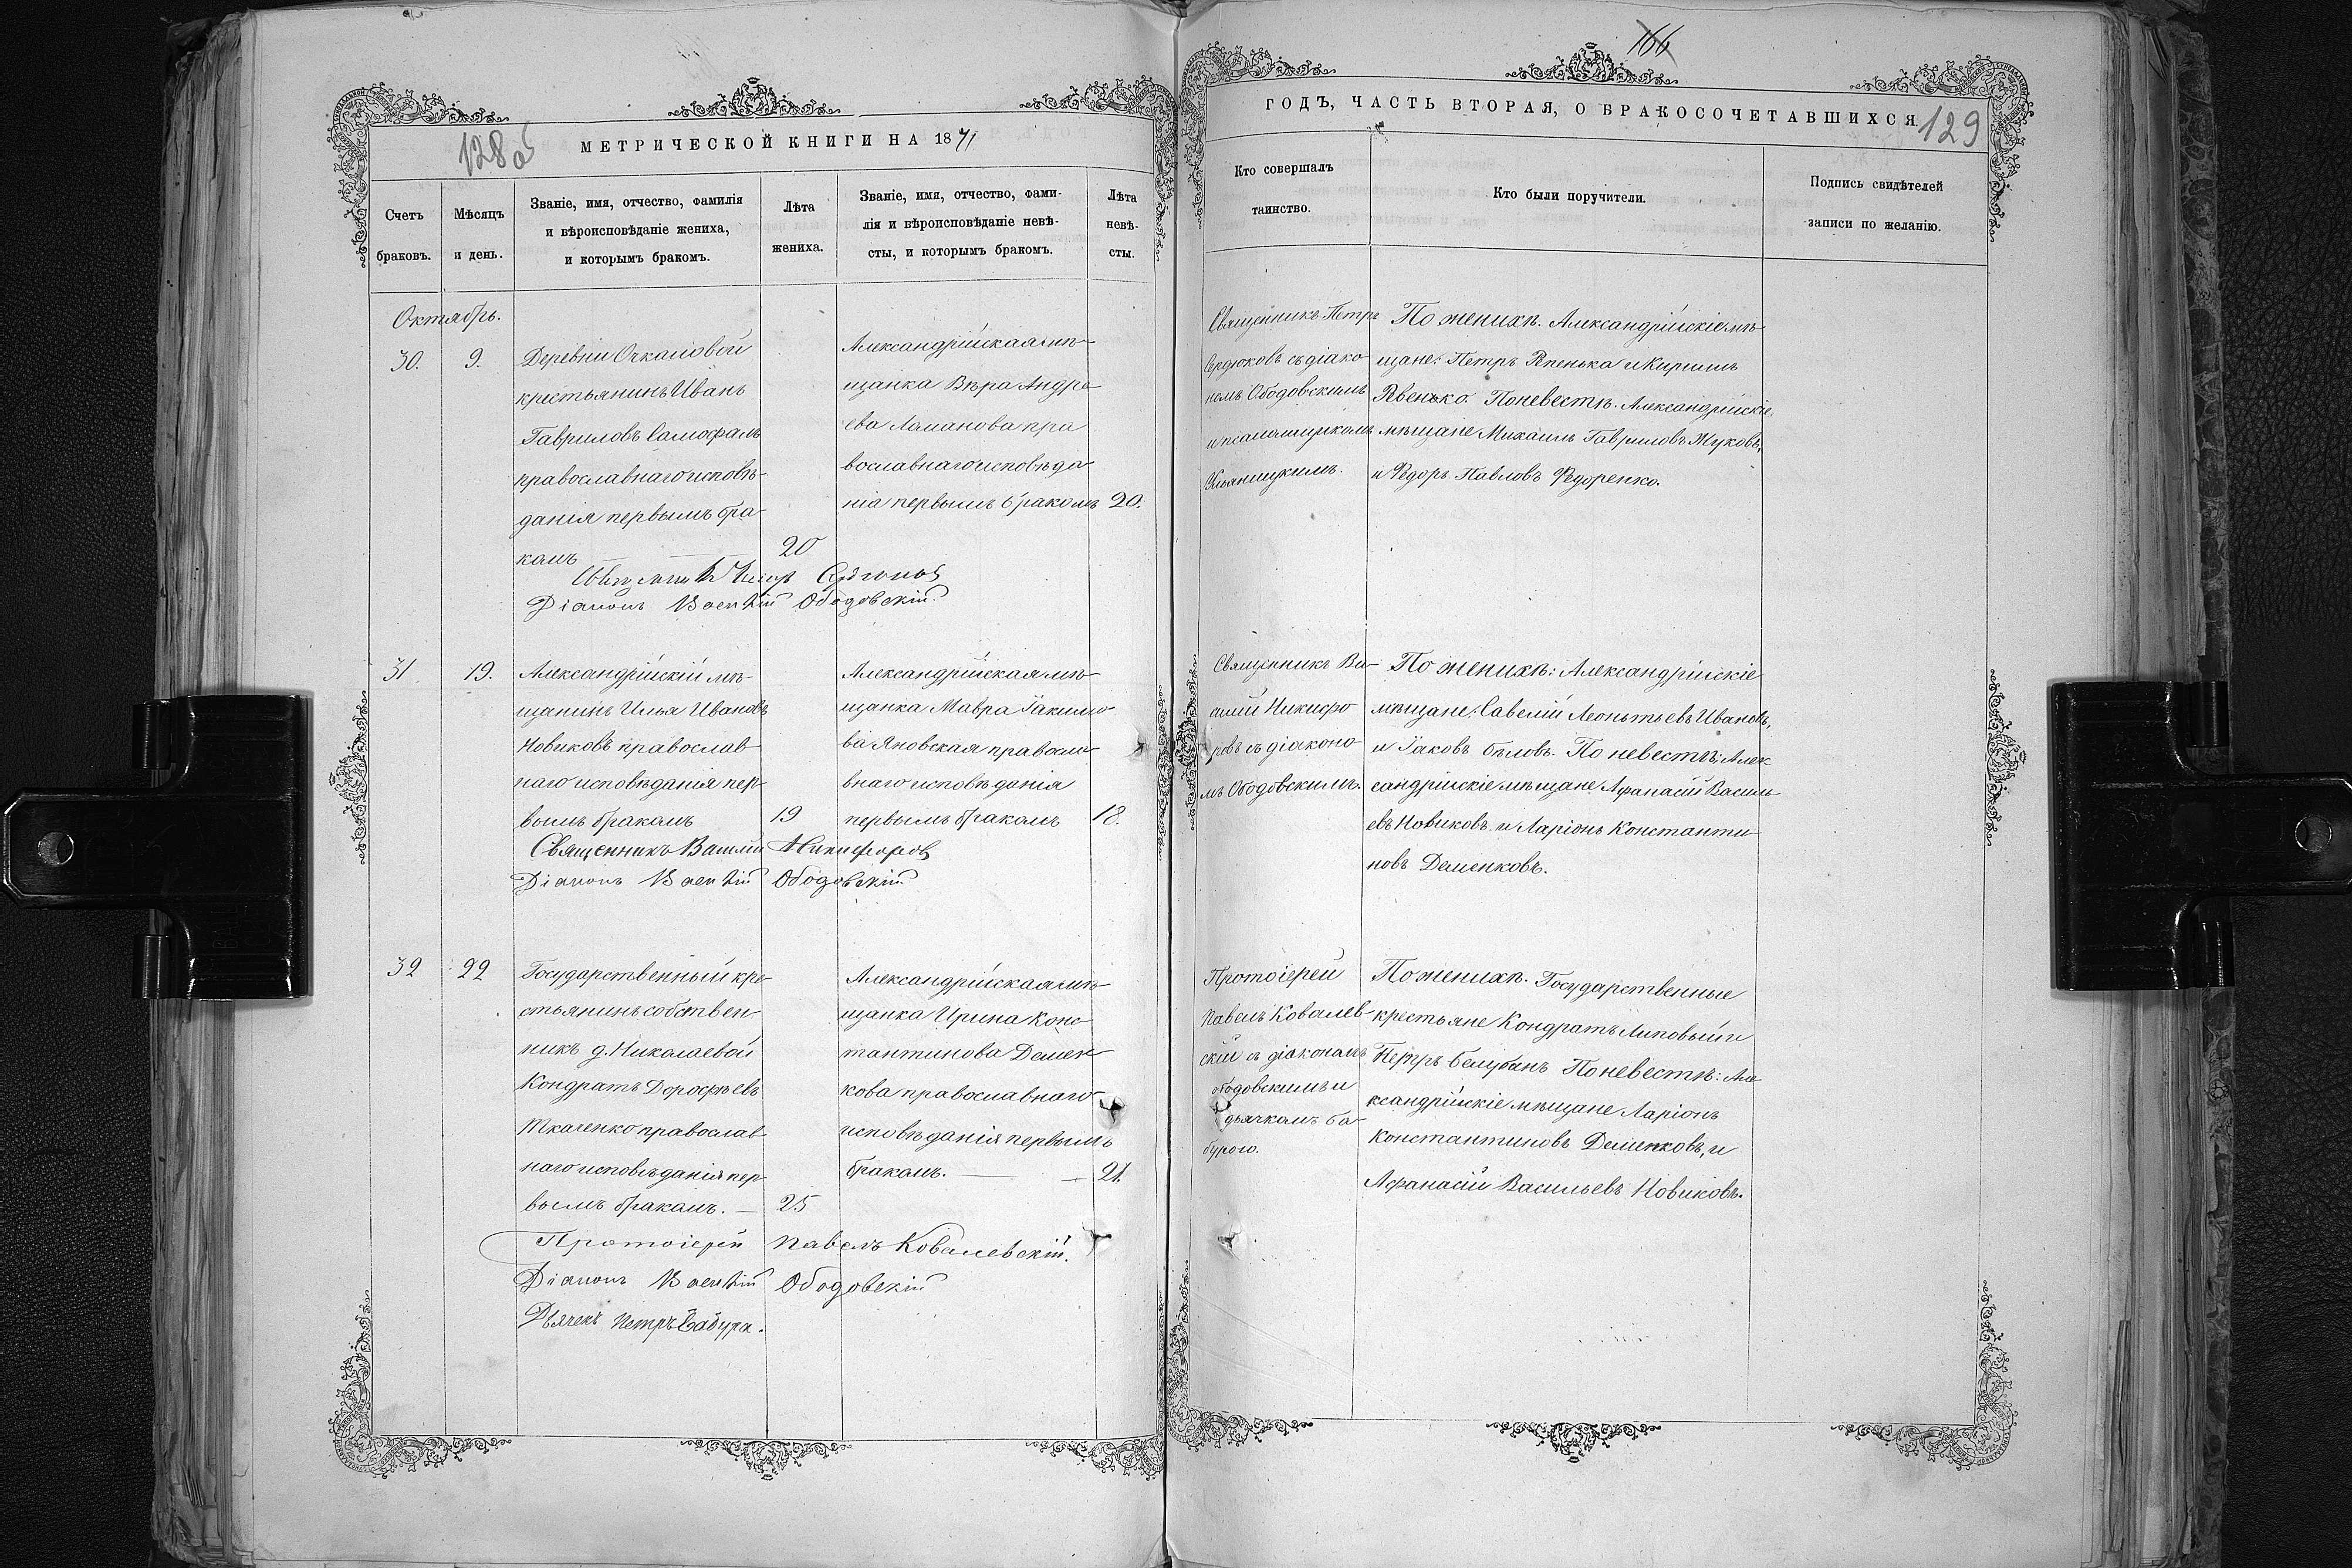 128 об
МЕТРИЧЕСКОЙ КНИГИ НА 1871
Счетъ
браковъ.
Мѣсяцъ
и день.
Званіе, имя, отчество, фамилія
и вѣроисповѣданіе жениха,
и которымъ бракомъ.
Лѣта
жениха.
Званіе, имя, отчество, фами-
лія и вѣроисповѣданіе невѣ-
сты, и которымъ бракомъ.
Лѣта
невѣ-
сты.
Октябрь.
30.
9.
Деревни
крестьянинъ Иванъ
Гавриловъ Самофалъ
православнаго исповѣ-
данія первымъ бра-
комъ
20
Александрійская мѣ-
щанка Вѣра Андре-
ева Ломанова пра
вославнаго исповѣда
нія первымъ бракомъ
20.
Діаконъ Ободовскій
31
19.
Александрійскій мѣ-
щанинъ Илья Ивановъ
Новиковъ православ-
наго исповѣданія пер-
вымъ бракомъ
19
Александрійская мѣ-
щанка Мавра Іакимо-
ва Яновская правосла-
внаго исповѣданія
первымъ бракомъ
18.
Священникъ Василій Никифоровъ
Діаконъ Ободовскій
32
22
Государственный кре-
стьянинъ собствен-
никъ д. Николаевой
Кондратъ Дорофѣевъ
Ткаченко православ-
наго исповѣданія пер-
вымъ бракомъ. —
25
Александрійская мѣ-
щанка Ирина Конс-
тантинова Демен-
кова православнаго
исповѣданія первымъ
бракомъ. —
21.
Протоіерей Павелъ Ковалевскій.
Діаконъ Ободовскій
Дьячекъ Петръ Бабура.
166
ГОДЪ, ЧАСТЬ ВТОРАЯ, О БРАКОСОЧЕТАВШИХСЯ
129
Кто совершалъ
таинство.
Кто были поручители.
Подпись свидѣтелей
записи по желанію.
Священникъ Петръ
Сердюковъ съ діако-
номъ Ободовскимъ
и псаломщикомъ
По женихѣ. Александрійскіе мѣ-
щане: Петръ Рѣпенька и Кириллъ
Рвенько. По невестѣ. Александрійскіе
мѣщане Михаилъ Гавриловъ Жуковъ,
и Ѳедоръ Павловъ Ѳедоренко.
Священникъ Ва-
силій Никифо
ровъ съ діаконо-
мъ Ободовскимъ.
По женихѣ: Александрійскіе
мѣщане: Савелій Леонтьевъ Ивановъ,
и Іаковъ Бѣловъ. По невестѣ: Алек
сандрійскіе мѣщане Афанасій Василь-
евъ Новиковъ и Ларіонъ Константи-
новъ Деменковъ.
Протоіерей
Павелъ Ковалев-
скій съ діакономъ
Ободовскимъ и
дьячкомъ Ба-
бурою.
По женихѣ. Государственные
крестьяне Кондратъ Липовый и
Петръ По невестѣ: Але-
ксандрійскіе мѣщане Ларіонъ
Константиновъ Деменковъ, и
Афанасій Васильевъ Новиковъ.